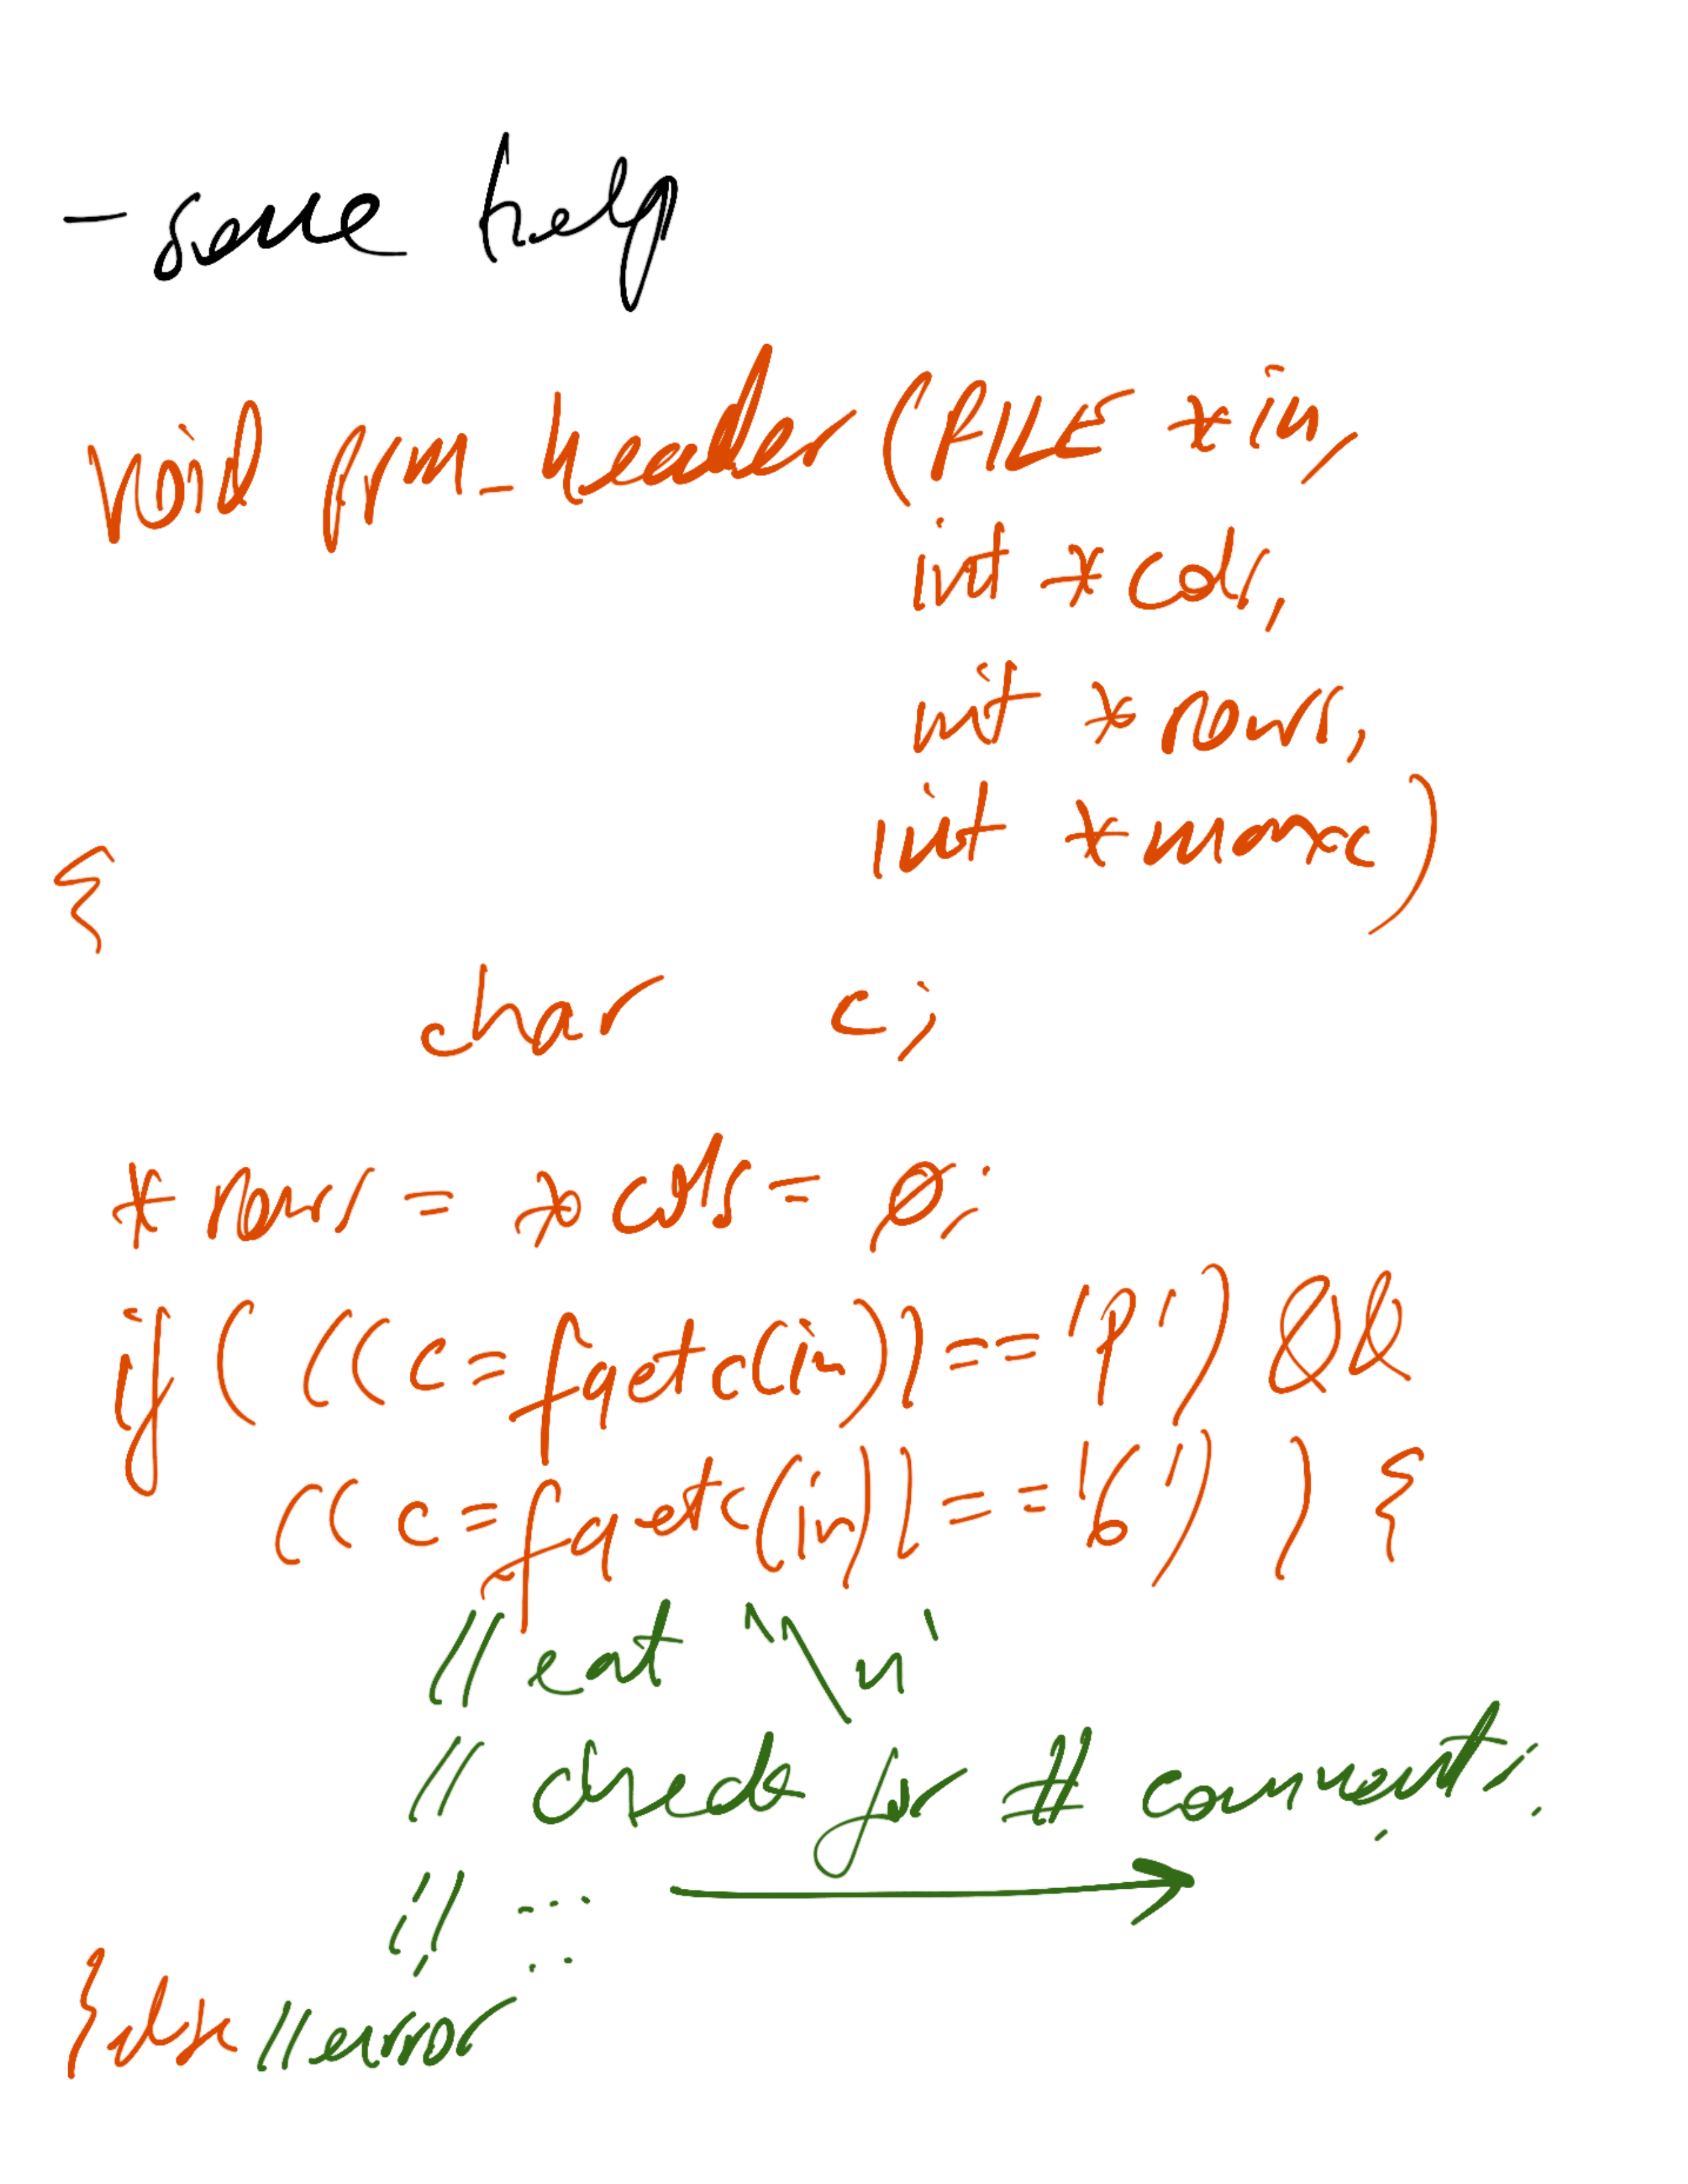 - some help
void ppm_header (FILE *in,
int *cols,
int *rows,
int *maxc)
{
char c;
*rows = *cols = 0;
if ( ((c=fgetc(in))=='P') &&
((c=fgetc(in))=='6') ) {
// eat '\n'
// check for # comments
// ...
}else //error